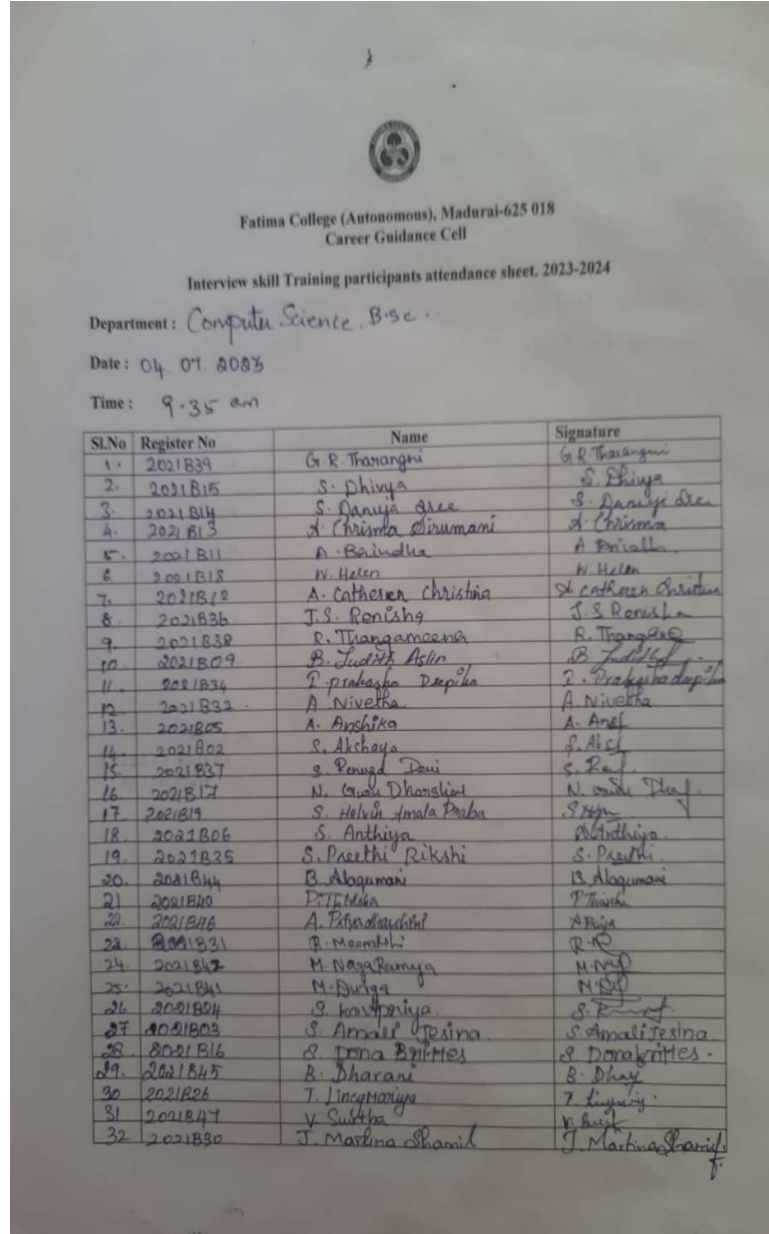 Fatima College (Autonomous), Madurai-625 018
Career Guidance Cell
Interview skill Training participants attendance sheet. 2023-2024
Department : Computer Science. B.Sc.
Date : 04. 07. 2023
Time : 9.35 am
Sl.No Register No Name Signature
1. 2021B39 G.R. Tharangni G.R. Tharangni
2. 2021B15 S. Dhivya S. Dhivya
3. 2021B14 S. Daniya Sree S. Daniya Sree
4. 2021B13 A. Chrisma Sirumani A. Chrisma
5. 2021B11 A. Brindha A
6. 2021B18 W. Helen W. Helen
7. 2021B12 A. Catheren Christina A. Catheren Christina
8. 2021B36 J.S. Renisha J.S Renisha
9. 2021B38 R. Thangameena R.
10 2021B09 B. Judith Aslin B. Judith
11. 2021B34 I. Prakasha Deepika I. Prakashadeepika
12. 2021B32. A Nivetha A. Nivetha
13. 2021B05 A. Anshika A.
14. 2021B02 S. Akchaya S.
15. 2021B37 S. Renuga Devi S.
16. 2021B17 N. Guru Dharshini N.
17. 2021B19 S. Helvin Amala Praba S
18. 2021B06 S. Anthiya S. Anthiya.
19. 2021B35 S. Preethi Rikshi S. Preethi.
20. 2021B44 B. Alagumani B. Alagumani
21 2021B40 P.
22. 2021B46 A. Priyadharshini A Priya
23. 2021B31 R. Meenakshi R.
24. 2021B42 M. NagaRamya M.
25. 2021B41 M. Durga M.
26 2021B24 S. Kavipriya. S.
27 2021B03 S. Amali Jesina. S. Amali Jesina
28. 2021B16 S Dona Brittes S Dona Brittes.
29. 2021B45 B. Dharani B.
30 2021B26 T. LincyMariya T.
31 2021B47 V. Sujitha V.
32 2021B30 J. Martina Shamil J. Martina Shamil.